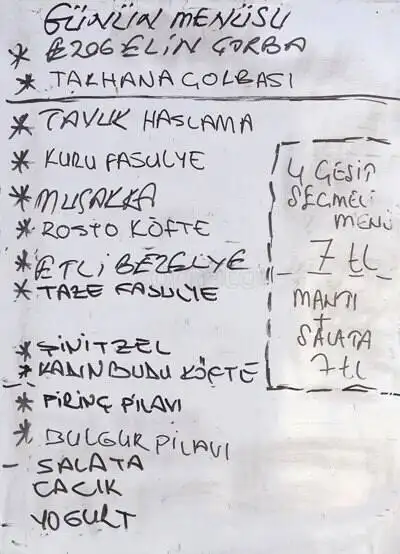 GÜNÜN MENÜSÜ
* EZOGELİN ÇORBA
* TARHANA ÇOLBASI
* TAVUK HASLAMA
* KURU FASULYE
* MUSAKKA
* ROSTO KÖFTE
* ETLİ BEZELYE
* TAZE FASULYE
* ŞİNİTZEL
* KADINBUDU KÖFTE
* PİRİNÇ PİLAVI
* BULGUR PİLAVI
- SALATA
CACIK
YOGURT
4 ÇEŞİT
SEÇMELİ
MENÜ
7 tL
MANTI
+
SALATA
7 tL